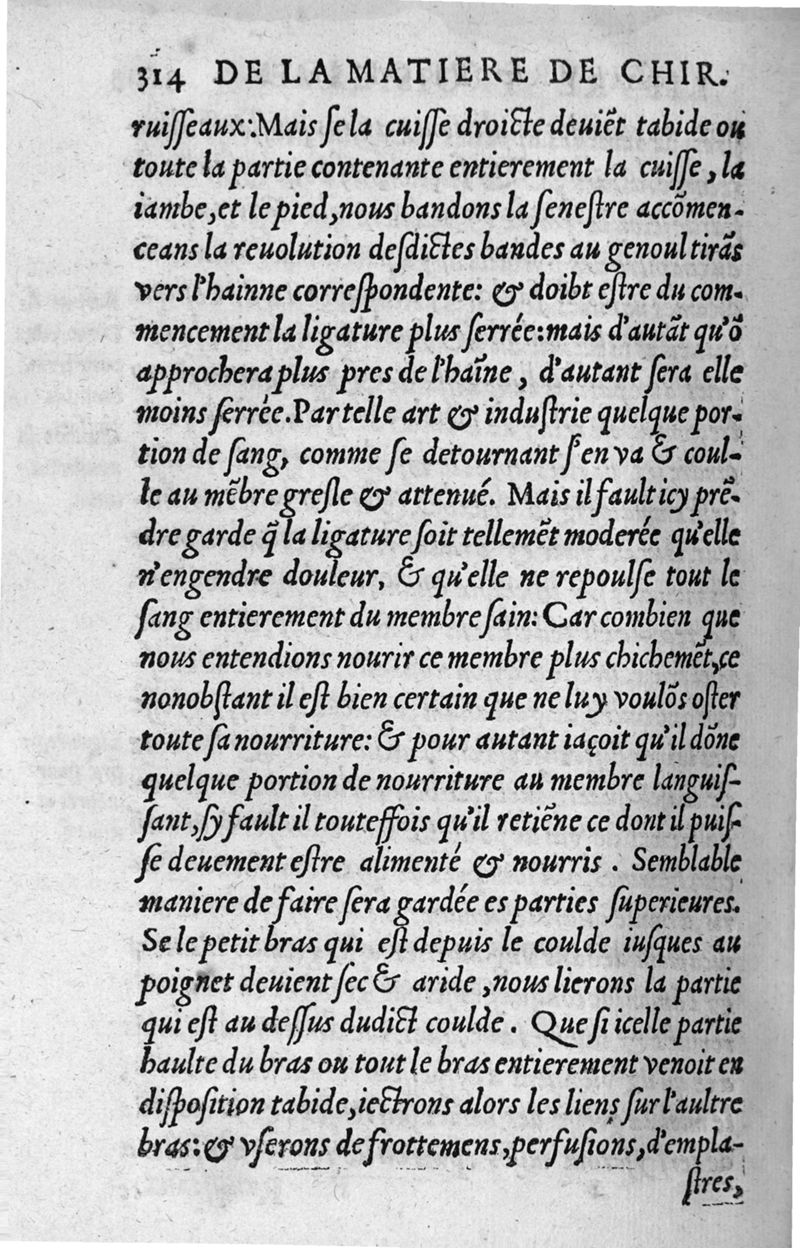 314 DE LA MATIERE DE CHIR.
ruiſſeaux:.Mais ſe la cuiſſe droicte deuiẽt tabide ou
toute la partie contenante entierement la cuiſſe, la
iambe, et le pied, nous bandons la ſeneſtre accõmen-
ceans la reuolution deſdictes bandes au genoul tirãs
vers l'hainne correſpondente: & doibt eſtre du com-
mencement la ligature plus ſerrée: mais d'autãt qu'õ
approchera plus pres de l'haĩne, d'autant ſera elle
moins ſerrée. Par telle art & induſtrie quelque por-
tion de ſang, comme ſe detournant ſ'en va & coul-
le au mẽbre greſle & attenué. Mais il fault icy prẽ-
dre garde q̃ la ligature ſoit tellemẽt moderée qu'elle
n'engendre douleur, & qu'elle ne repoulſe tout le
ſang entierement du membre ſain: Car combien que
nous entendions nourir ce membre plus chichemẽt, ce
nonobſtant il eſt bien certain que ne luy voulõs oſter
toute ſa nourriture: & pour autant iaçoit qu'il dõne
quelque portion de nourriture au membre languiſ-
ſant, ſy fault il touteffois qu'il retiẽne ce dont il puiſ-
ſe deuement eſtre alimenté & nourris. Semblable
maniere de faire ſera gardée es parties ſuperieures.
Se le petit bras qui eſt depuis le coulde iuſques au
poignet deuient ſec & aride, nous lierons la partie
qui eſt au deſſus dudict coulde. Que ſi icelle partie
haulte du bras ou tout le bras entierement venoit en
diſpoſition tabide, iectrons alors les liens ſur l'aultre
bras: & vſerons de frottemens, perfuſions, d'empla-
ſtres,